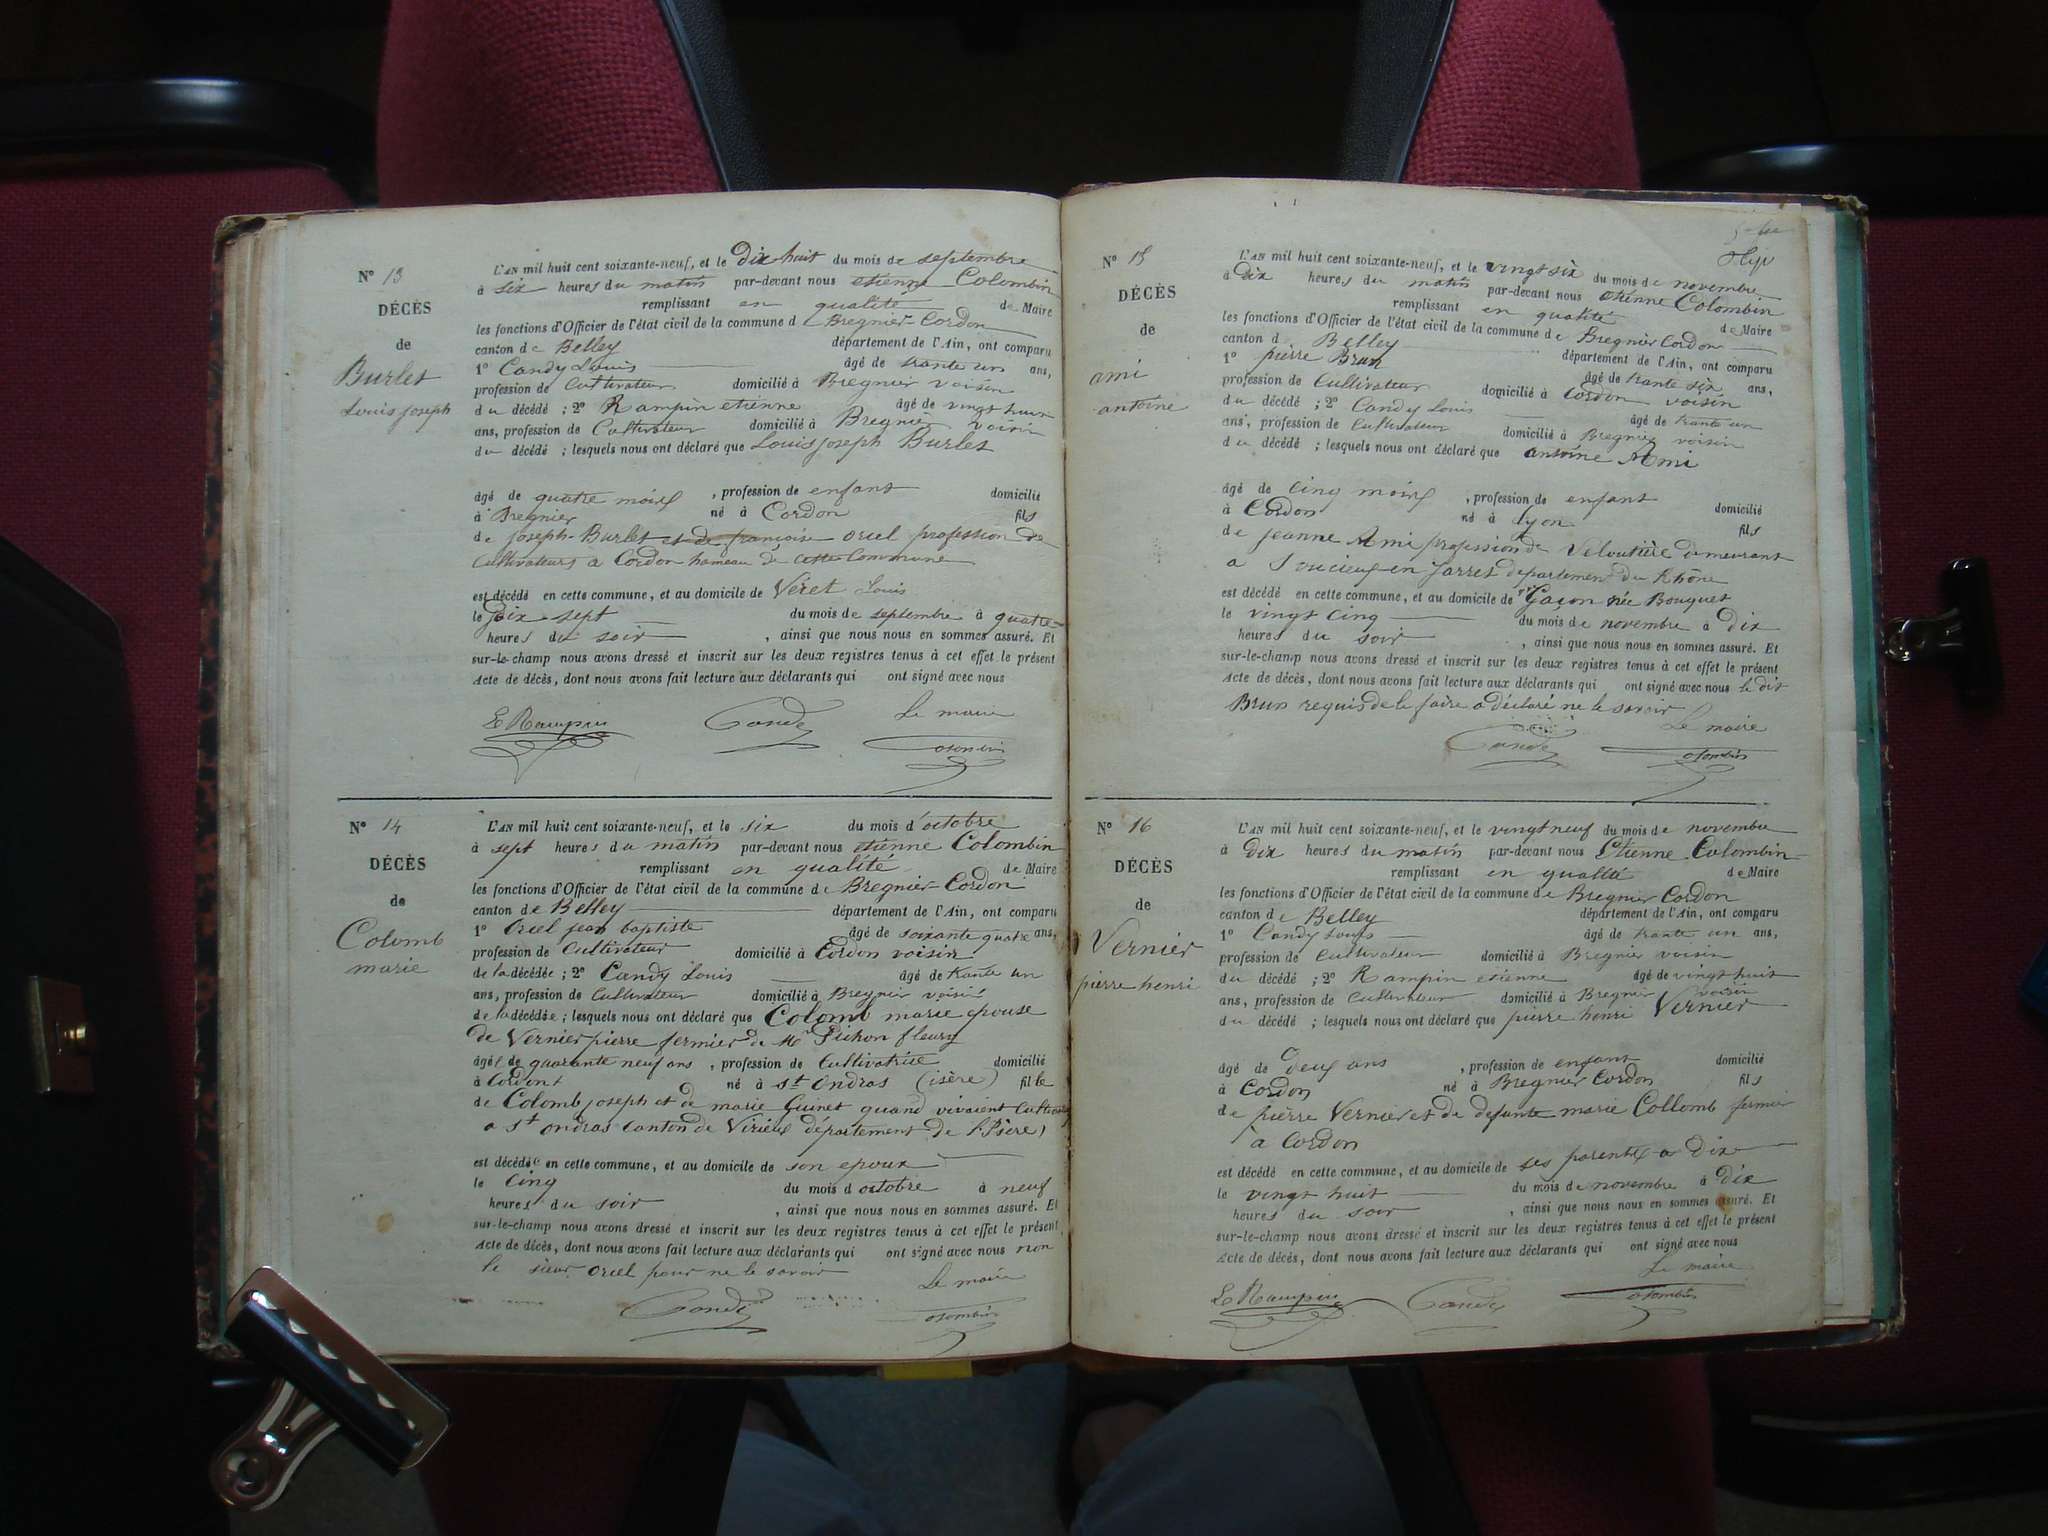 N° 13
DÉCÈS
de
Burlet
Louis joseph
L'AN mil huit cent soixante-neuf, et le Dix huit du mois de septembre
à six heures du matin par-devant nous etienne Colombin
remplissant en qualité de Maire
les fonctions d'Officier de l'état civil de la commune d Bregnier-Cordon
canton de Belley département de l'Ain, ont comparu
1° Candy Louis âgé de trante un ans,
profession de Cultivateur domicilié à Bregnier voisin
du décédé ; 2° Rampin etienne âgé de vingt huit
ans, profession de Cultivateur domicilié à Bregnier voisin
du décédé ; lesquels nous ont déclaré que Louis joseph Burlet
âgé de quatre mois , profession de enfant domicilié
à Bregnier né à Cordon fils
de joseph Burlet et de françoise oriel profession de
Cultivateurs a Cordon hameau de cette Commune
est décédé en cette commune, et au domicile de Veret Louis
le Dix sept du mois de septembre à quatre
heures du soir , ainsi que nous nous en sommes assuré. Et
sur-le-champ nous avons dressé et inscrit sur les deux registres tenus à cet effet le présent
Acte de décès, dont nous avons fait lecture aux déclarants qui ont signé avec nous
E Rampin Candy Le maire
Colombin
N° 14
DÉCÈS
de
Colomb
marie
L'AN mil huit cent soixante-neuf, et le six du mois d'octobre
à sept heures du matin par-devant nous etienne Colombin
remplissant en qualité de Maire
les fonctions d'Officier de l'état civil de la commune de Bregnier-Cordon
canton de Belley département de l'Ain, ont comparu
1° Oriel jean baptiste âgé de soixante quatre ans,
profession de Cultivateur domicilié à Cordon voisin
de la décédée ; 2° Candy Louis âgé de trante un
ans, profession de Cultivateur domicilié à Bregnier voisin
de la décédée ; lesquels nous ont déclaré que Colomb marie epouse
de Vernier pierre fermier de Mr Pichon fleury
âgée de quarante neuf ans , profession de Cultivatrice domicilié
à Cordont né à st ondras (isère) fille
de Colomb joseph et de marie Guinet quand vivaient
a st ondras Canton de Virieux département de l'Isère)
est décédée en cette commune, et au domicile de son epoux
le Cinq du mois d'octobre à neuf
heures du soir , ainsi que nous nous en sommes assuré. Et
sur-le-champ nous avons dressé et inscrit sur les deux registres tenus à cet effet le présent
Acte de décès, dont nous avons fait lecture aux déclarants qui ont signé avec nous non
le sieur oriel pour ne le savoir
Le maire
Candy Colombin
N° 15
DÉCÈS
de
ami
antoine
L'AN mil huit cent soixante-neuf, et le vingt six du mois de novembre
à Dix heures du matin par-devant nous etienne Colombin
remplissant en qualité de Maire
les fonctions d'Officier de l'état civil de la commune de Bregnier Cordon
canton d. Belley département de l'Ain, ont comparu
1° pierre Brun âgé de trante six ans,
profession de Cultivateur domicilié à Cordon voisin
du décédé ; 2° Candy Louis âgé de trante un
ans, profession de Cultivateur domicilié à Bregnier voisin
du décédé ; lesquels nous ont déclaré que antoine Ami
âgé de cinq mois , profession de enfant domicilié
à Cordon né à lyon fils
de jeanne Ami profession de Veloutière demeurant
a Soucieux en jarret departement du Rhône
est décédé en cette commune, et au domicile de Gaçon née Bouquet
le vingt cinq du mois de novembre à dix
heures du soir , ainsi que nous nous en sommes assuré. Et
sur-le-champ nous avons dressé et inscrit sur les deux registres tenus à cet effet le présent
Acte de décès, dont nous avons fait lecture aux déclarants qui ont signé avec nous le dit
Brun requis de le faire a déclaré ne le savoir
Le maire
Candy Colombin
N° 16
DÉCÈS
de
Vernier
pierre henri
L'AN mil huit cent soixante-neuf, et le vingt neuf du mois de novembre
à Dix heures du matin par-devant nous Etienne Colombin
remplissant en qualité de Maire
les fonctions d'Officier de l'état civil de la commune de Bregnier Cordon
canton de Belley département de l'Ain, ont comparu
1° Candy Louis âgé de trante un ans,
profession de Cultivateur domicilié à Bregnier voisin
du décédé ; 2° Rampin etienne âgé de vingt huit
ans, profession de Cultivateur domicilié à Bregnier voisin
du décédé ; lesquels nous ont déclaré que pierre henri Vernier
âgé de deux ans , profession de enfant domicilié
à Cordon né à Bregnier Cordon fils
de pierre Vernier et de defunte marie Collomb fermier
à Cordon
est décédé en cette commune, et au domicile de ses parents a Dix
le vingt huit du mois de novembre à dix
heures du soir , ainsi que nous nous en sommes assuré. Et
sur-le-champ nous avons dressé et inscrit sur les deux registres tenus à cet effet le présent
Acte de décès, dont nous avons fait lecture aux déclarants qui ont signé avec nous
Le maire
E Rampin Candy Colombin